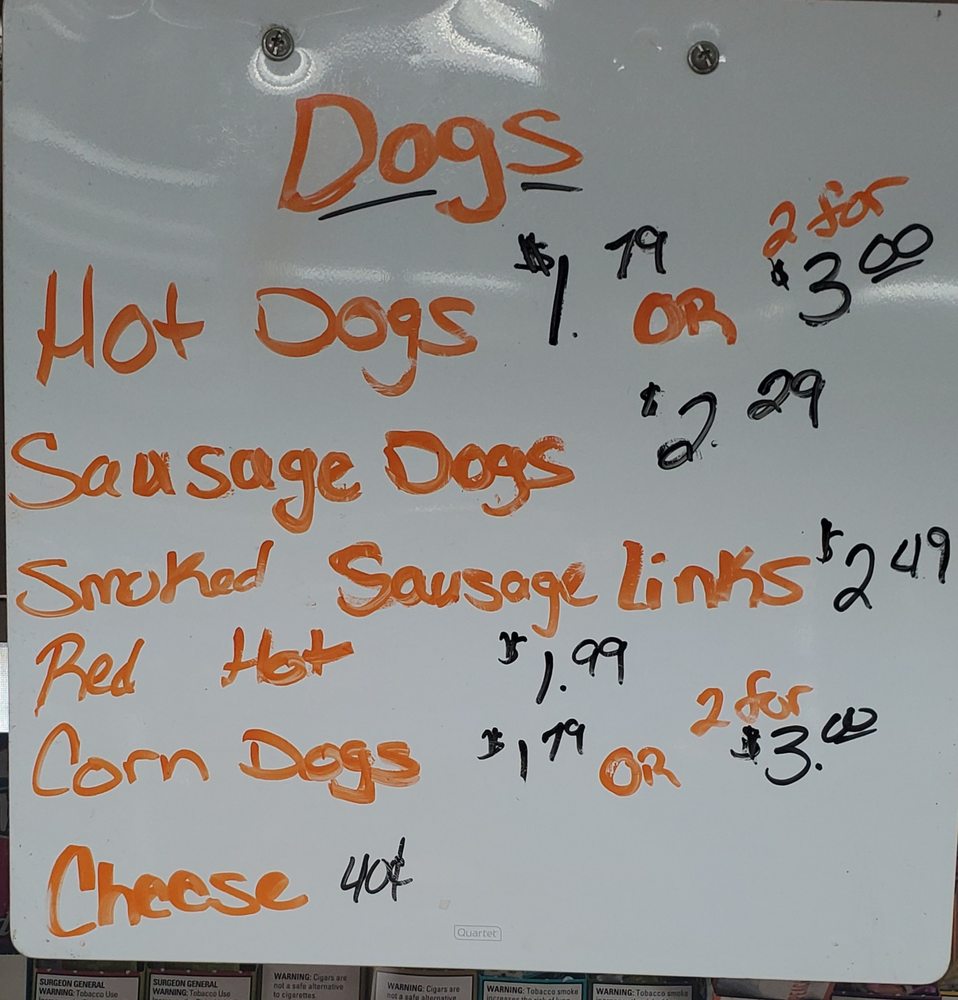 Dogs
Hot Dogs $1.79 OR 2 for $3.00
Sausage Dogs $2.29
Smoked Sausage Links $2 49
Red Hot $1.99
Corn Dogs $1 79 OR 2 for $3.00
Cheese 40¢
Quartet
SURGEON GENERAL
WARNING: Tobacco Use
SURGEON GENERAL
WARNING: Tobacco Use
WARNING: Cigars are
not a safe alternative
to cigarettes.
WARNING: Cigars are
not a safe alternative
WARNING: Tobacco smoke
increases the risk of
WARNING: Tobacco smoke